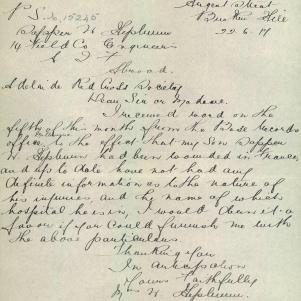 Argent Street
Broken Hill
22.6.17
Sapper W Hepburn
14 Field Co Engineers
A I F
Abroad
Adelaide Red Cross Society
Dear Sir or Madam
I received word on the
fifth of this month from the Base Records
Melbourne
office, to the effect that my Son Sapper
W. Hepburn had been wounded in France,
and up to date have not had any
definite information as to the nature of
his injuries, and the name of which
hospital he is in, I would deem it a
favor if you could furnish me with
the above particulars.
Thanking you
In Anticipation
Yours Faithfully
W. Hepburn.